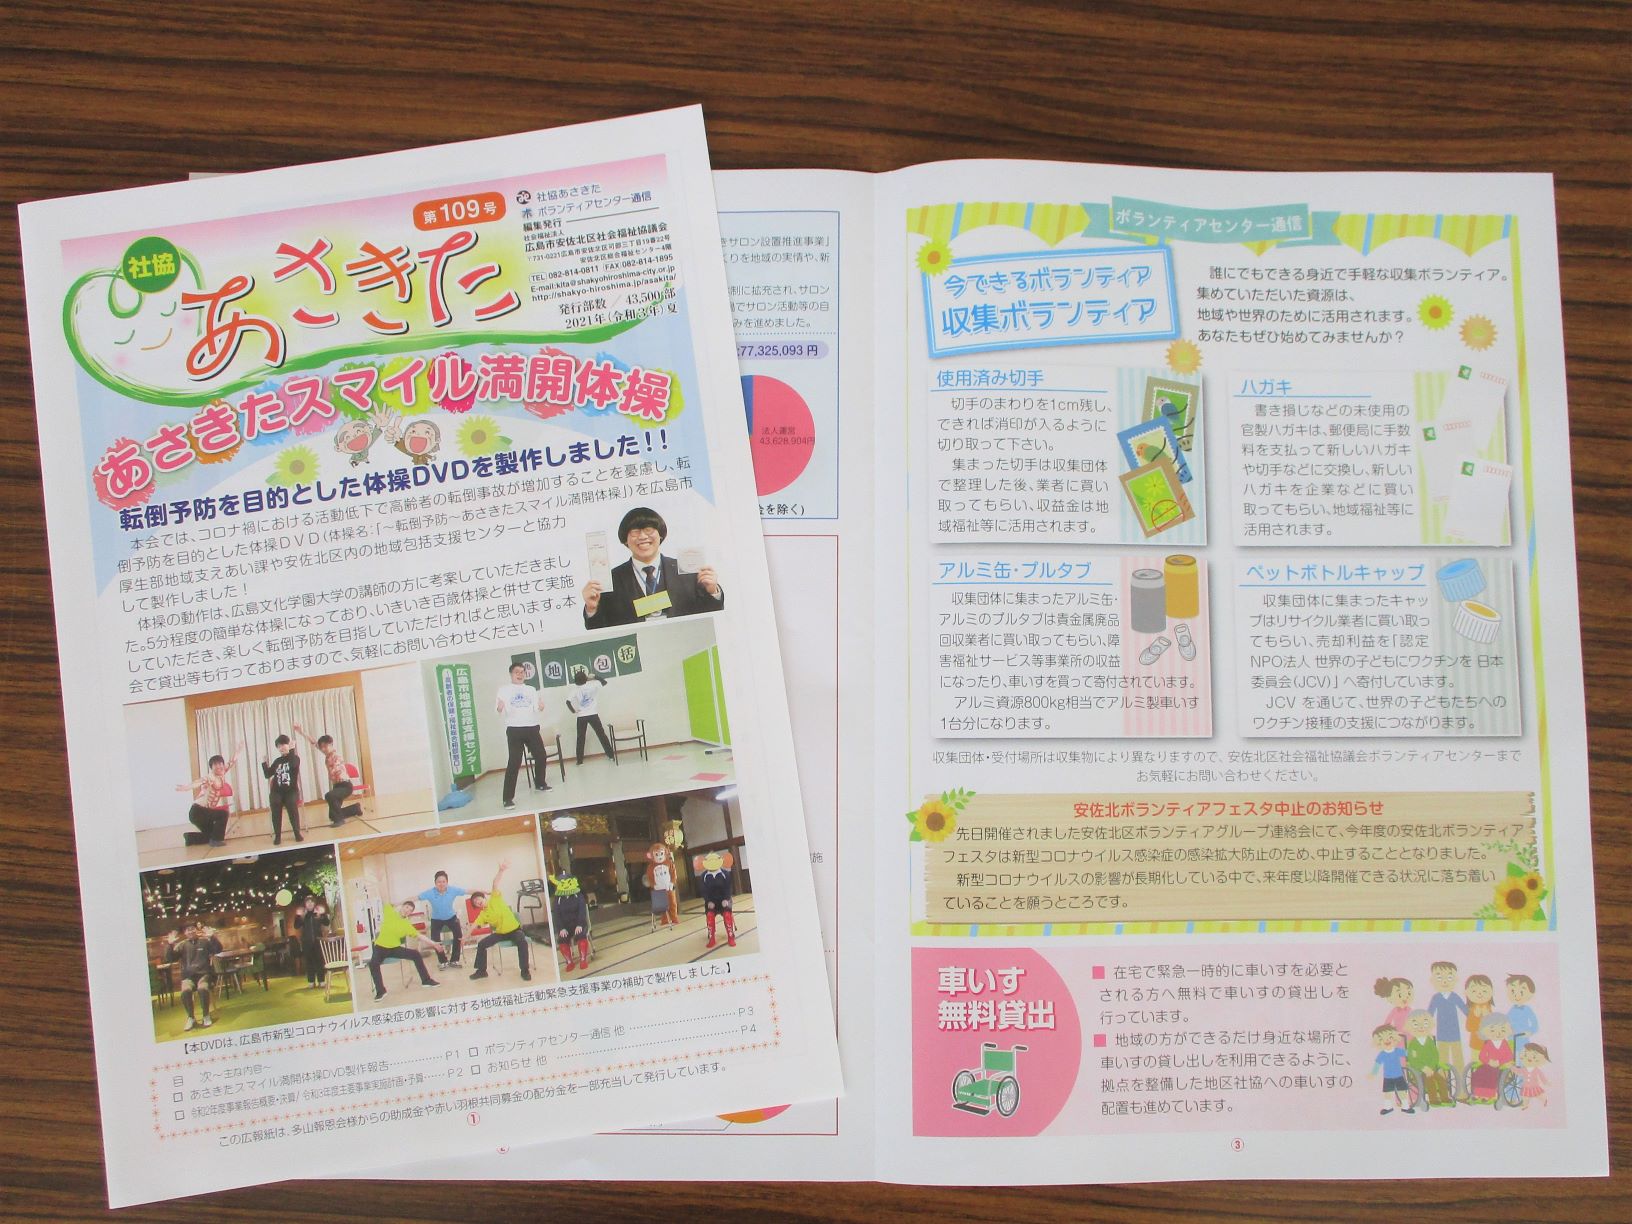 社協
あさきた
第109号
社協あさきた
ボランティアセンター通信
編集発行
社会福祉法人
広島市安佐北区社会福祉協議会
〒731-0221広島市安佐北区可部三丁目19番22号
安佐北区総合福祉センター4階
TEL 082-814-0811 FAX 082-814-1895
E-mail:kita@shakyohiroshima-city.or.jp
http://shakyo-hiroshima.jp/asakita/
発行部数 / 43,500部
2021年(令和3年)夏
あさきたスマイル満開体操
転倒予防を目的とした体操DVDを製作しました!!
本会では、コロナ禍における活動低下で高齢者の転倒事故が増加することを憂慮し、転
倒予防を目的とした体操DVD(体操名:「～転倒予防～あさきたスマイル満開体操」)を広島市
厚生部地域支えあい課や安佐北区内の地域包括支援センターと協力
して製作しました!
体操の動作は、広島文化学園大学の講師の方に考案していただきまし
た。5分程度の簡単な体操になっており、いきいき百歳体操と併せて実施
していただき、楽しく転倒予防を目指していただければと思います。本
会で貸出等も行っておりますので、気軽にお問い合わせください!
地域包括
広島市地域包括支援センター
【本DVDは、広島市新型コロナウイルス感染症の影響に対する地域福祉活動緊急支援事業の補助で製作しました。】
目 次～主な内容～
□ あさきたスマイル満開体操DVD製作報告…………P1
□ 令和2年度事業報告概要・決算/令和3年度主要事業実施計画・予算……P2
□ ボランティアセンター通信 他 ……………………P3
□ お知らせ 他 ……………………P4
この広報紙は、多山報恩会様からの助成金や赤い羽根共同募金の配分金を一部充当して発行しています。
①
きサロン設置推進事業」
くりを地域の実情や、新
制に拡充され、サロン
場でサロン活動等の自
みを進めました。
77,325,093 円
法人運営
43,628,904円
金を除く)
施
②
ボランティアセンター通信
今できるボランティア
収集ボランティア
誰にでもできる身近で手軽な収集ボランティア。
集めていただいた資源は、
地域や世界のために活用されます。
あなたもぜひ始めてみませんか?
使用済み切手
切手のまわりを1cm残し、
できれば消印が入るように
切り取って下さい。
集まった切手は収集団体
で整理した後、業者に買い
取ってもらい、収益金は地
域福祉等に活用されます。
ハガキ
書き損じなどの未使用の
官製ハガキは、郵便局に手数
料を支払って新しいハガキ
や切手などに交換し、新しい
ハガキを企業などに買い
取ってもらい、地域福祉等に
活用されます。
アルミ缶・プルタブ
収集団体に集まったアルミ缶・
アルミのプルタブは貴金属廃品
回収業者に買い取ってもらい、障
害福祉サービス等事業所の収益
になったり、車いすを買って寄付されています。
アルミ資源800kg相当でアルミ製車いす
1台分になります。
ペットボトルキャップ
収集団体に集まったキャッ
プはリサイクル業者に買い取っ
てもらい、売却利益を「認定
NPO法人 世界の子どもにワクチンを 日本
委員会(JCV)」へ寄付しています。
JCV を通じて、世界の子どもたちへの
ワクチン接種の支援につながります。
収集団体・受付場所は収集物により異なりますので、安佐北区社会福祉協議会ボランティアセンターまで
お気軽にお問い合わせください。
安佐北ボランティアフェスタ中止のお知らせ
先日開催されました安佐北区ボランティアグループ連絡会にて、今年度の安佐北ボランティア
フェスタは新型コロナウイルス感染症の感染拡大防止のため、中止することとなりました。
新型コロナウイルスの影響が長期化している中で、来年度以降開催できる状況に落ち着い
ていることを願うところです。
車いす
無料貸出
■ 在宅で緊急一時的に車いすを必要と
される方へ無料で車いすの貸出しを
行っています。
■ 地域の方ができるだけ身近な場所で
車いすの貸し出しを利用できるように、
拠点を整備した地区社協への車いすの
配置も進めています。
③